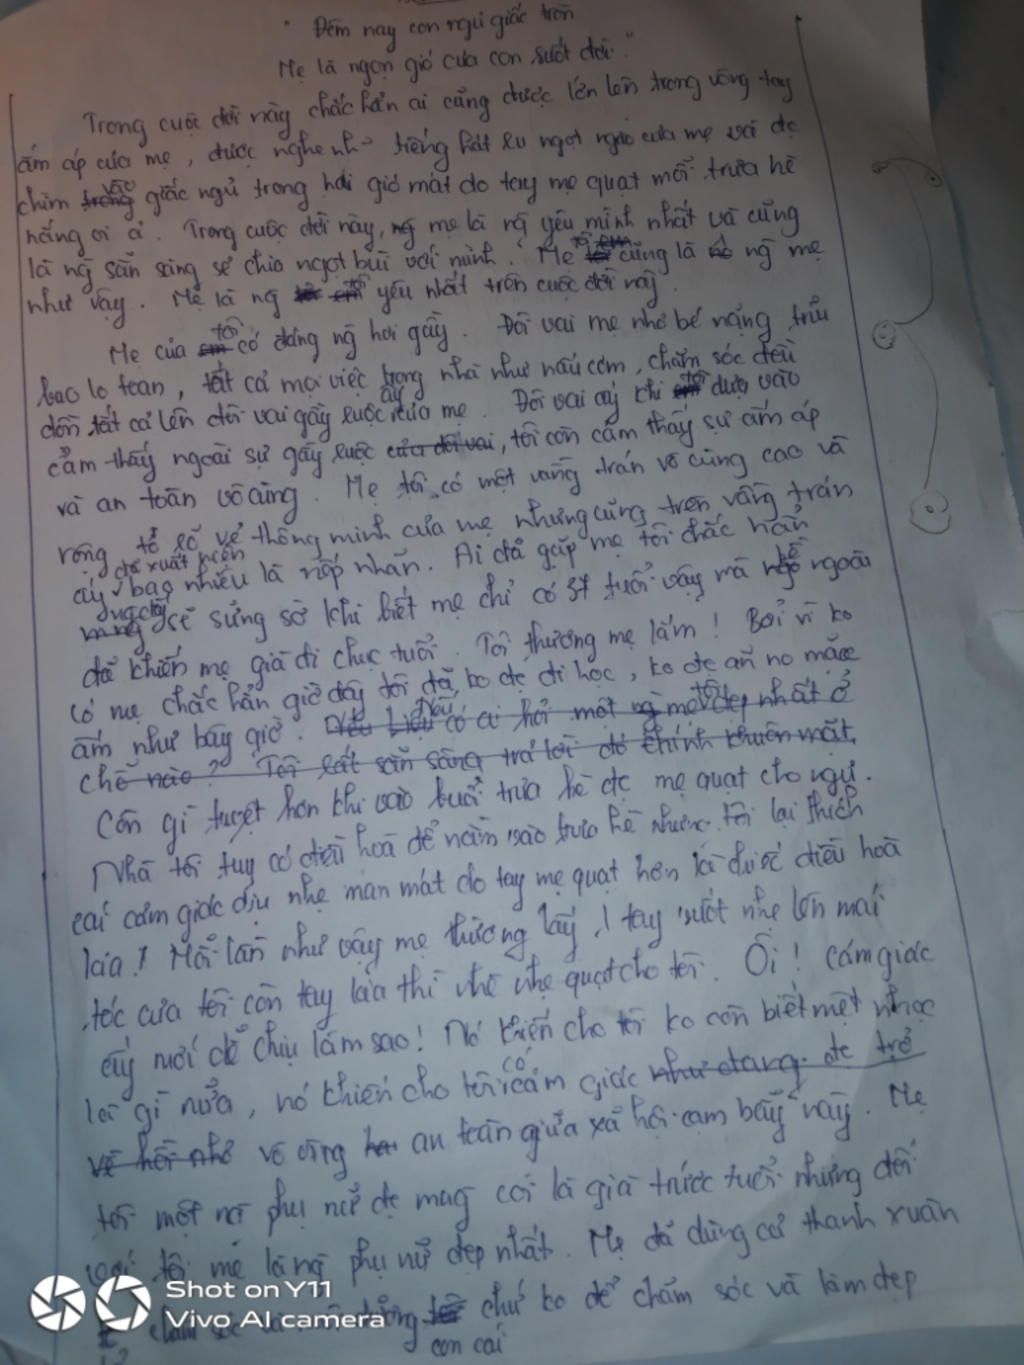 " Đêm nay con ngủ giấc tròn
Mẹ là ngọn gió của con suốt đời "
Trong cuộc đời này chắc hẳn ai cũng được lớn lên trong vòng tay
ấm áp của mẹ, được nghe tiếng hát ru ngọt ngào của mẹ và đc
chìm trong vào giấc ngủ trong hơi gió mát do tay mẹ quạt mỗi trưa hè
nắng oi ả. Trong cuộc đời này, ng mẹ là ng yêu mình nhất và cũng
là ng sẵn sàng sẻ chia ngọt bùi với mình. Mẹ tôi cũng là ng mẹ
như vậy. Mẹ là ng tôi yêu nhất trên cuộc đời này.
Mẹ của em tôi có dáng ng hơi gầy. Đôi vai mẹ nhỏ bé nặng trĩu
bao lo toan, tất cả mọi việc trong nhà như nấu cơm, chăm sóc đều
dồn tất cả lên đôi vai gầy guộc ấy của mẹ. Đôi vai ấy khi em tôi dựa vào
cảm thấy ngoài sự gầy guộc của đôi vai, tôi còn cảm thấy sự ấm áp
và an toàn vô cùng. Mẹ tôi có một vầng trán vô cùng cao và
rộng tỏ rõ vẻ thông minh của mẹ nhưng cũng trên vầng trán
ấy đã xuất hiện bao nhiêu là nếp nhăn. Ai đã gặp mẹ tôi chắc hẳn
sẽ sửng sờ khi biết mẹ chỉ có 37 tuổi vậy mà ngoài
đã khiến mẹ già đi chục tuổi. Tôi thương mẹ lắm! Bởi vì ko
có mẹ chắc hẳn giờ đây tôi đã ko đc đi học, ko đc ăn no mặc
ấm như bây giờ. Nếu có ai hỏi một ng mẹ tôi đẹp nhất ở
chỗ nào? Tôi rất sẵn sàng trả lời đó chính khuôn mặt.
Còn gì tuyệt hơn khi vào buổi trưa hè đc mẹ quạt cho ngủ.
Nhà tôi tuy có điều hoà để nằm vào trưa hè nhưng tôi lại thích
cái cảm giác dịu nhẹ man mát do tay mẹ quạt hơn là dưới điều hoà
kia! Mỗi lần như vậy mẹ thường lấy 1 tay vuốt nhẹ lên mái
tóc của tôi còn tay kia thì nhè nhẹ quạt cho tôi. Ôi! cảm giác
ấy mới dễ chịu làm sao! Nó khiến cho tôi ko còn biết mệt nhọc
là gì nữa, nó khiến cho tôi có cảm giác như đang đc trở
về hồi nhỏ vô cùng an toàn giữa xã hội cạm bẫy này. Mẹ
tôi một ng phụ nữ đc mng coi là già trước tuổi nhưng đối
với tôi mẹ là ng phụ nữ đẹp nhất. Mẹ đã dùng cả thanh xuân
chăm sóc chứ ko để chăm sóc và làm đẹp
con cái
Shot on Y11
Vivo AI camera